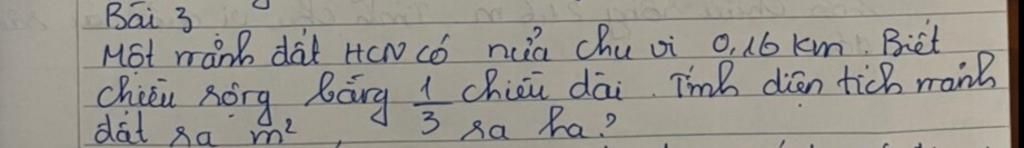 Bài 3
Một mảnh đất HCN có nửa chu vi 0,16 km. Biết
chiều rộng bằng 1/3 chiều dài. Tính diện tích mảnh
đất ra m², ra ha?